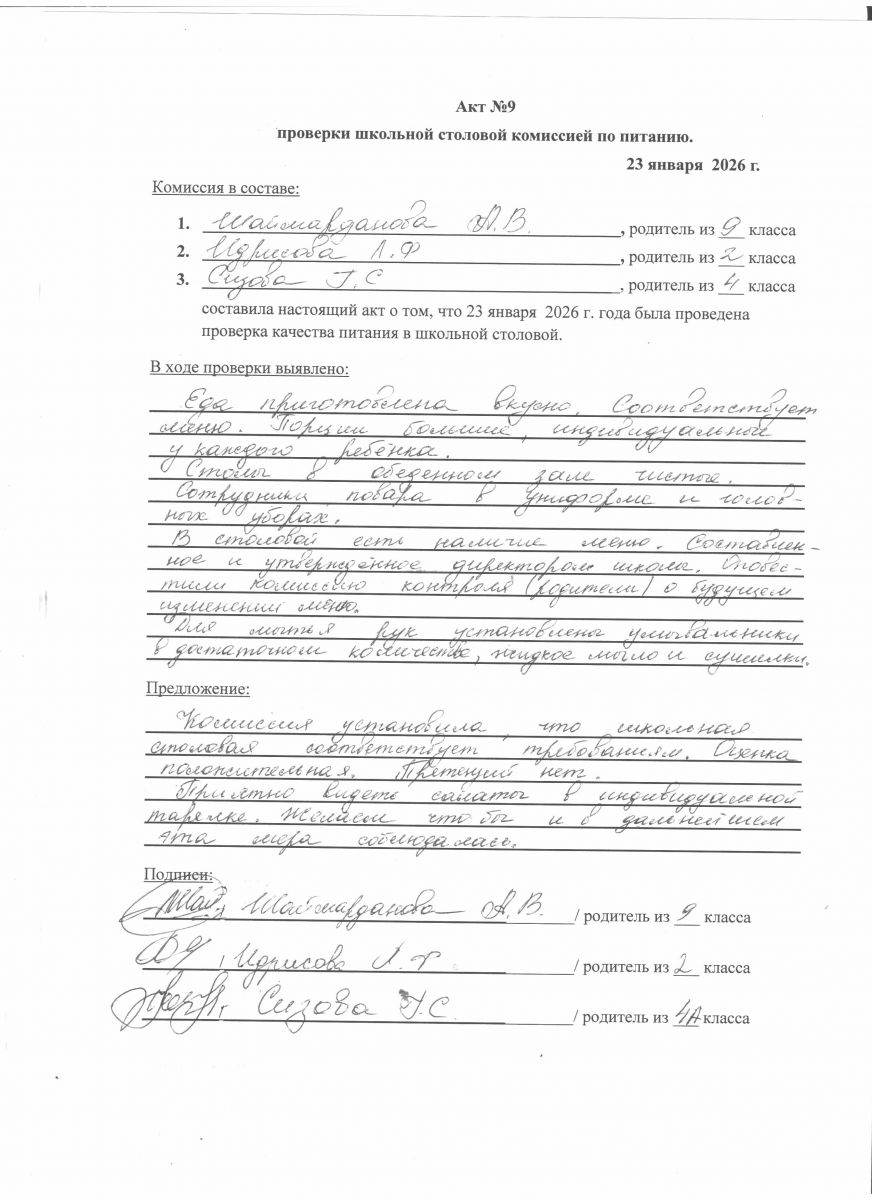 Акт №9
проверки школьной столовой комиссией по питанию.
23 января 2026 г.
Комиссия в составе:
1. Шаймарданова А.В. , родитель из 9 класса
2. Идрисова Л.Ф , родитель из 2 класса
3. Сизова Г.С , родитель из 4 класса
составила настоящий акт о том, что 23 января 2026 г. года была проведена
проверка качества питания в школьной столовой.
В ходе проверки выявлено:
Еда приготовлена вкусно. Соответствует
меню. Порции большие, индивидуальные
у каждого ребёнка.
Столы в обеденном зале чистые.
Сотрудники повара в униформе и голов-
ных уборах.
В столовой есть наличие меню. Составлен-
ное и утверждённое директором школы. Опове-
тили комиссию контроля (родители) о будущем
изменении меню.
Для мытья рук установлены умывальники
в достаточном количестве, жидкое мыло и сушилки.
Предложение:
Комиссия установила, что школьная
столовая соответствует требованиям. Оценка
положительная. Претензий нет.
Приятно видеть салаты в индивидуальной
тарелке. Желаем что бы и в дальнейшем
эта мера соблюдалась.
Подписи:
Шаймарданова А.В. / родитель из 9 класса
Идрисова Л.Ф. / родитель из 2 класса
Сизова Г.С. / родитель из 4А класса